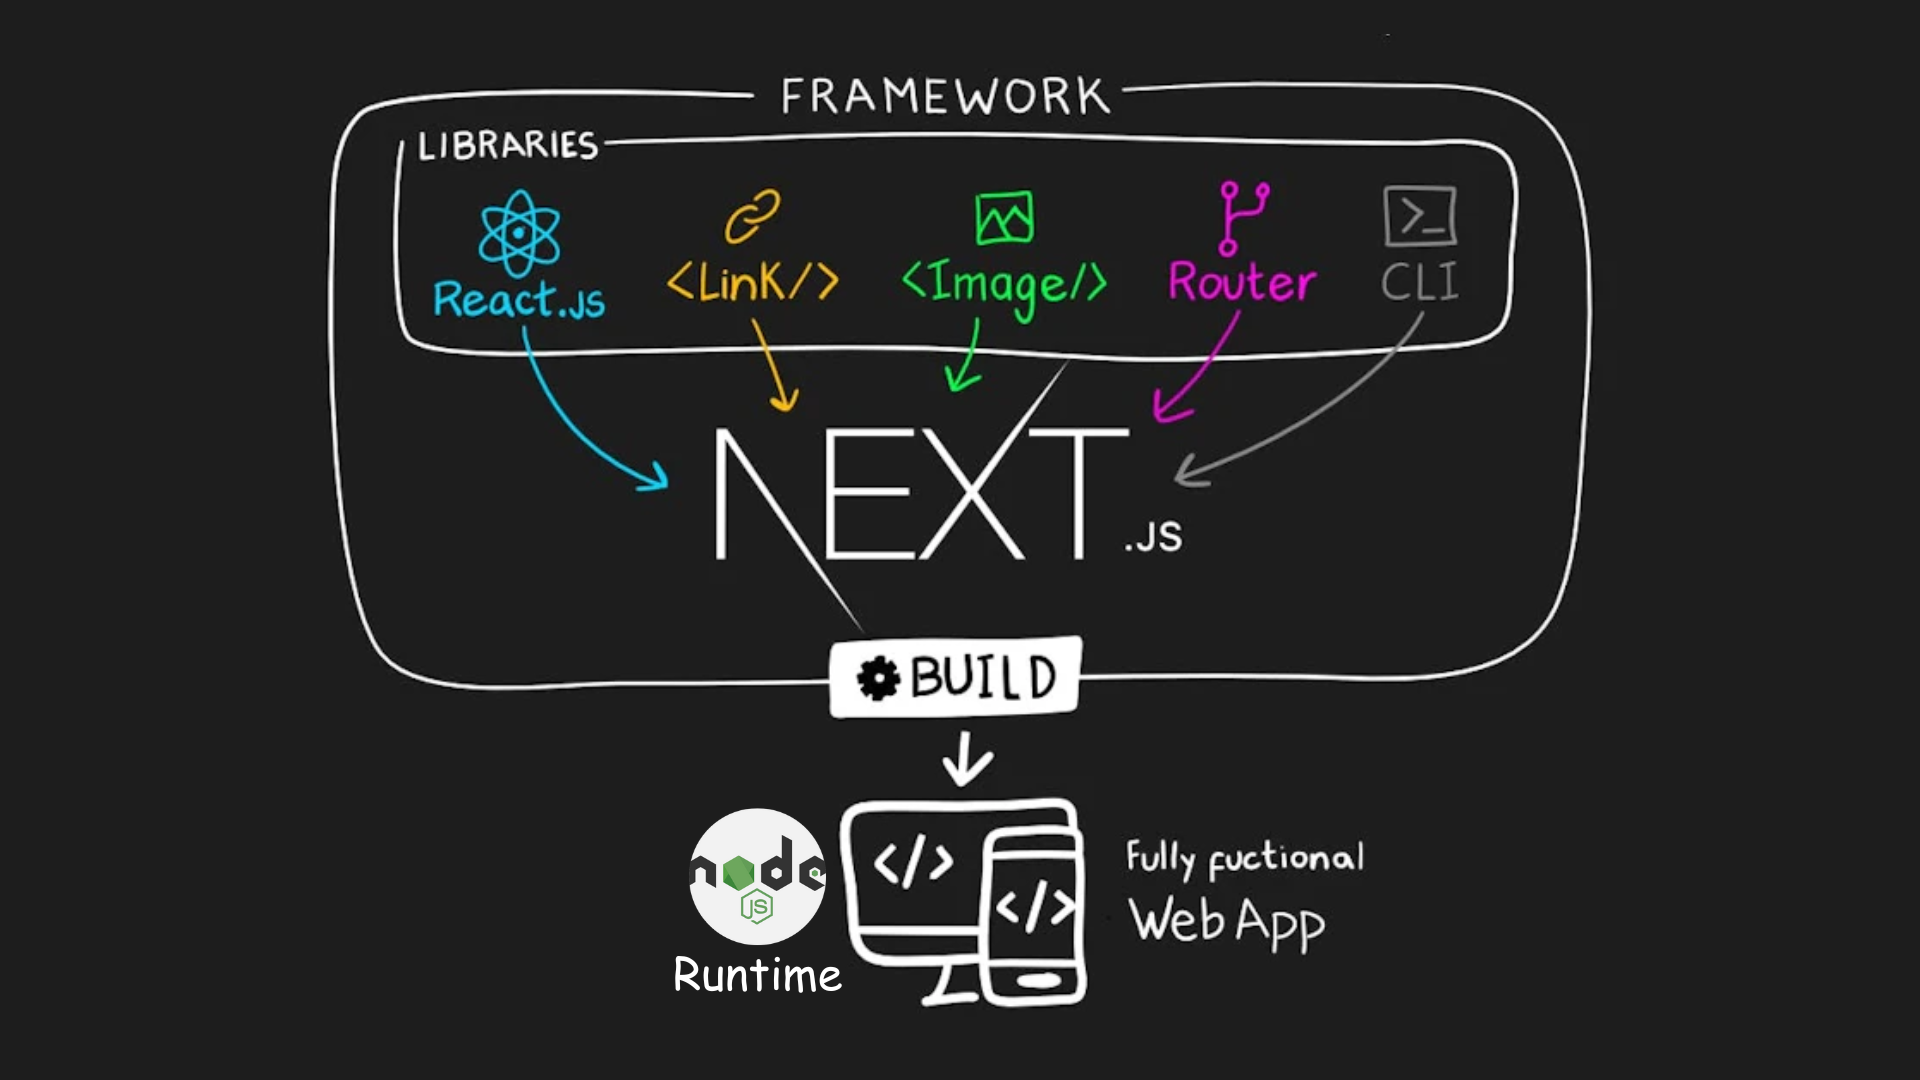 FRAMEWORK
LIBRARIES
React.js
<Link/>
<Image/>
Router
>_
CLI
NEXT
.JS
BUILD
</>
</>
node
JS
Runtime
Fully fuctional
Web App